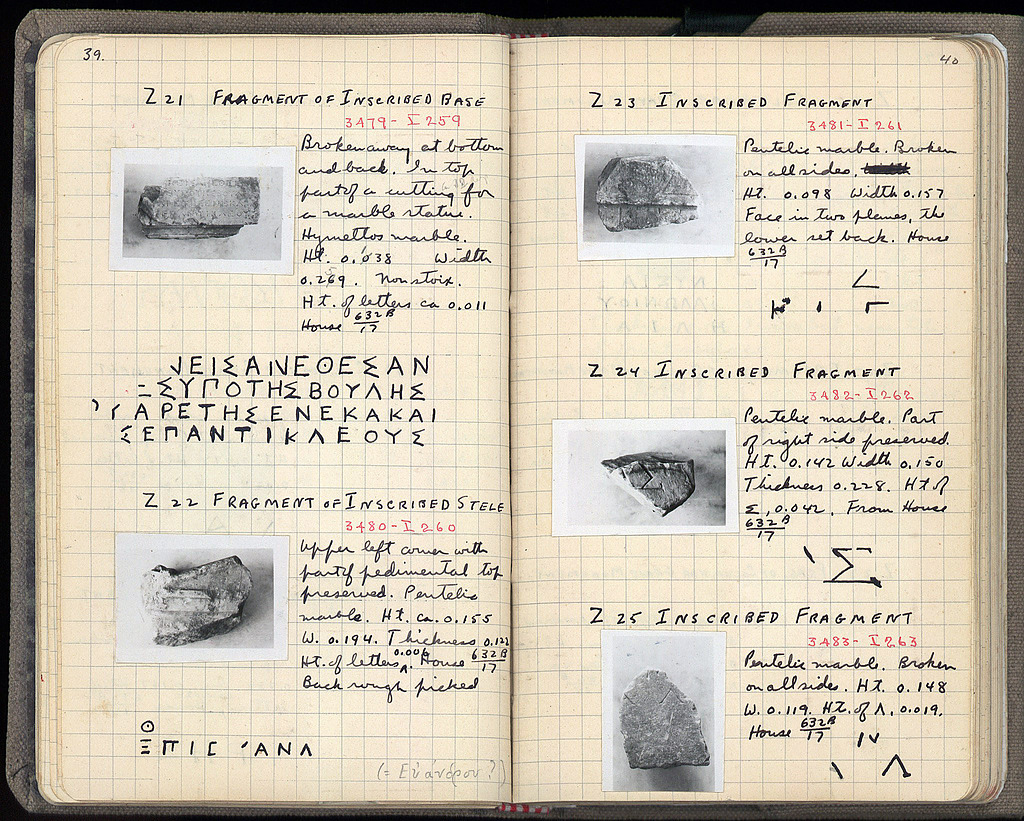 39.
Z 21 FRAGMENT OF INSCRIBED BASE
3479 - I 259
Broken away at bottom
and back. In top
part of a cutting for
a marble statue.
Hymettos marble.
Ht. 0.038 Width
0.269. Non stoix.
Ht. of letters ca 0.011
House 632B/17
ΝΕΙΣΑΝΕΘΕΣΑΝ
ΞΣΥΓΟΤΗΣΒΟΥΛΗΣ
ΑΡΕΤΗΣΕΝΕΚΑΚΑΙ
ΣΕΠΑΝΤΙΚΛΕΟΥΣ
Z 22 FRAGMENT OF INSCRIBED STELE
3480 - I 260
Upper left corner with
part of pedimental top
preserved. Pentelic
marble. Ht. ca. 0.155
W. 0.194. Thickness 0.122
Ht. of letters 0.006. House 632B/17
Back rough picked
Θ
ΞΠΙΣ ΑΝΛ
(= Εὐάνδρου?)
40
Z 23 INSCRIBED FRAGMENT
3481 - I 261
Pentelic marble. Broken
on all sides.
Ht. 0.098 Width 0.157
Face in two planes, the
lower set back. House
632B/17
Z 24 INSCRIBED FRAGMENT
3482 - I 262
Pentelic marble. Part
of right side preserved.
Ht. 0.142 Width 0.150
Thickness 0.228. Ht of
Σ, 0.042. From House
632B/17
\ Σ
Z 25 INSCRIBED FRAGMENT
3483 - I 263
Pentelic marble. Broken
on all sides. Ht. 0.148
W. 0.119. Ht. of Λ, 0.019.
House 632B/17
\ Λ